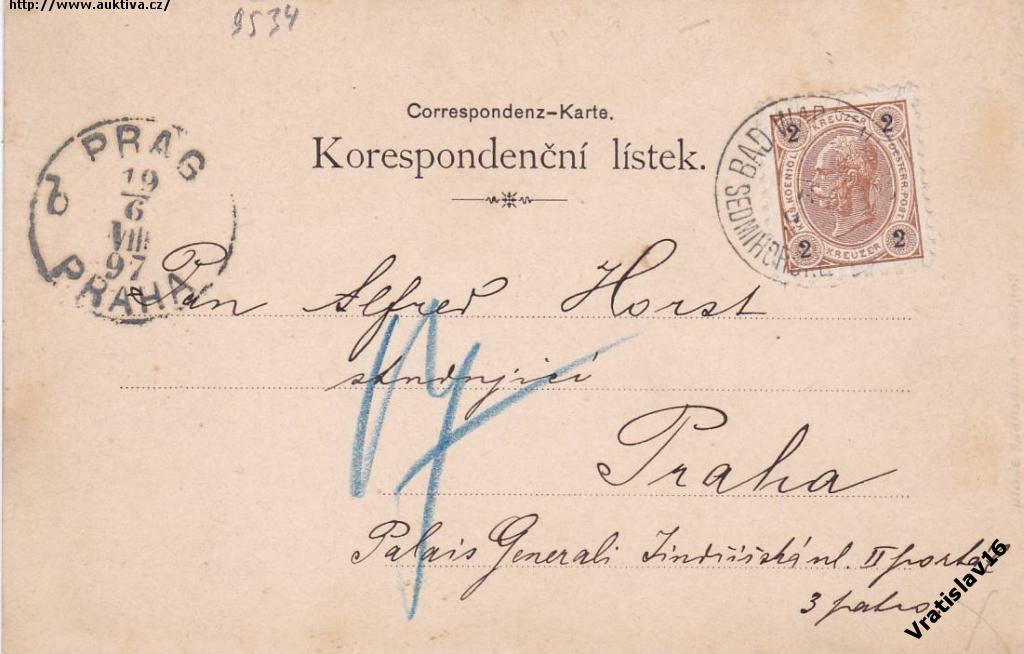 http://www.auktiva.cz/
9534
Correspondenz-Karte.
Korespondenční lístek.
PRAG
19
6
VIII
97
PRAHA
BAD
SEDMIHORSKÉ
2 KREUZER 2
2 KREUZER 2
Pan Alfred Horst
studující
Praha
Palais Generali Jindřišská ul. II
3 patro
Vratislav16